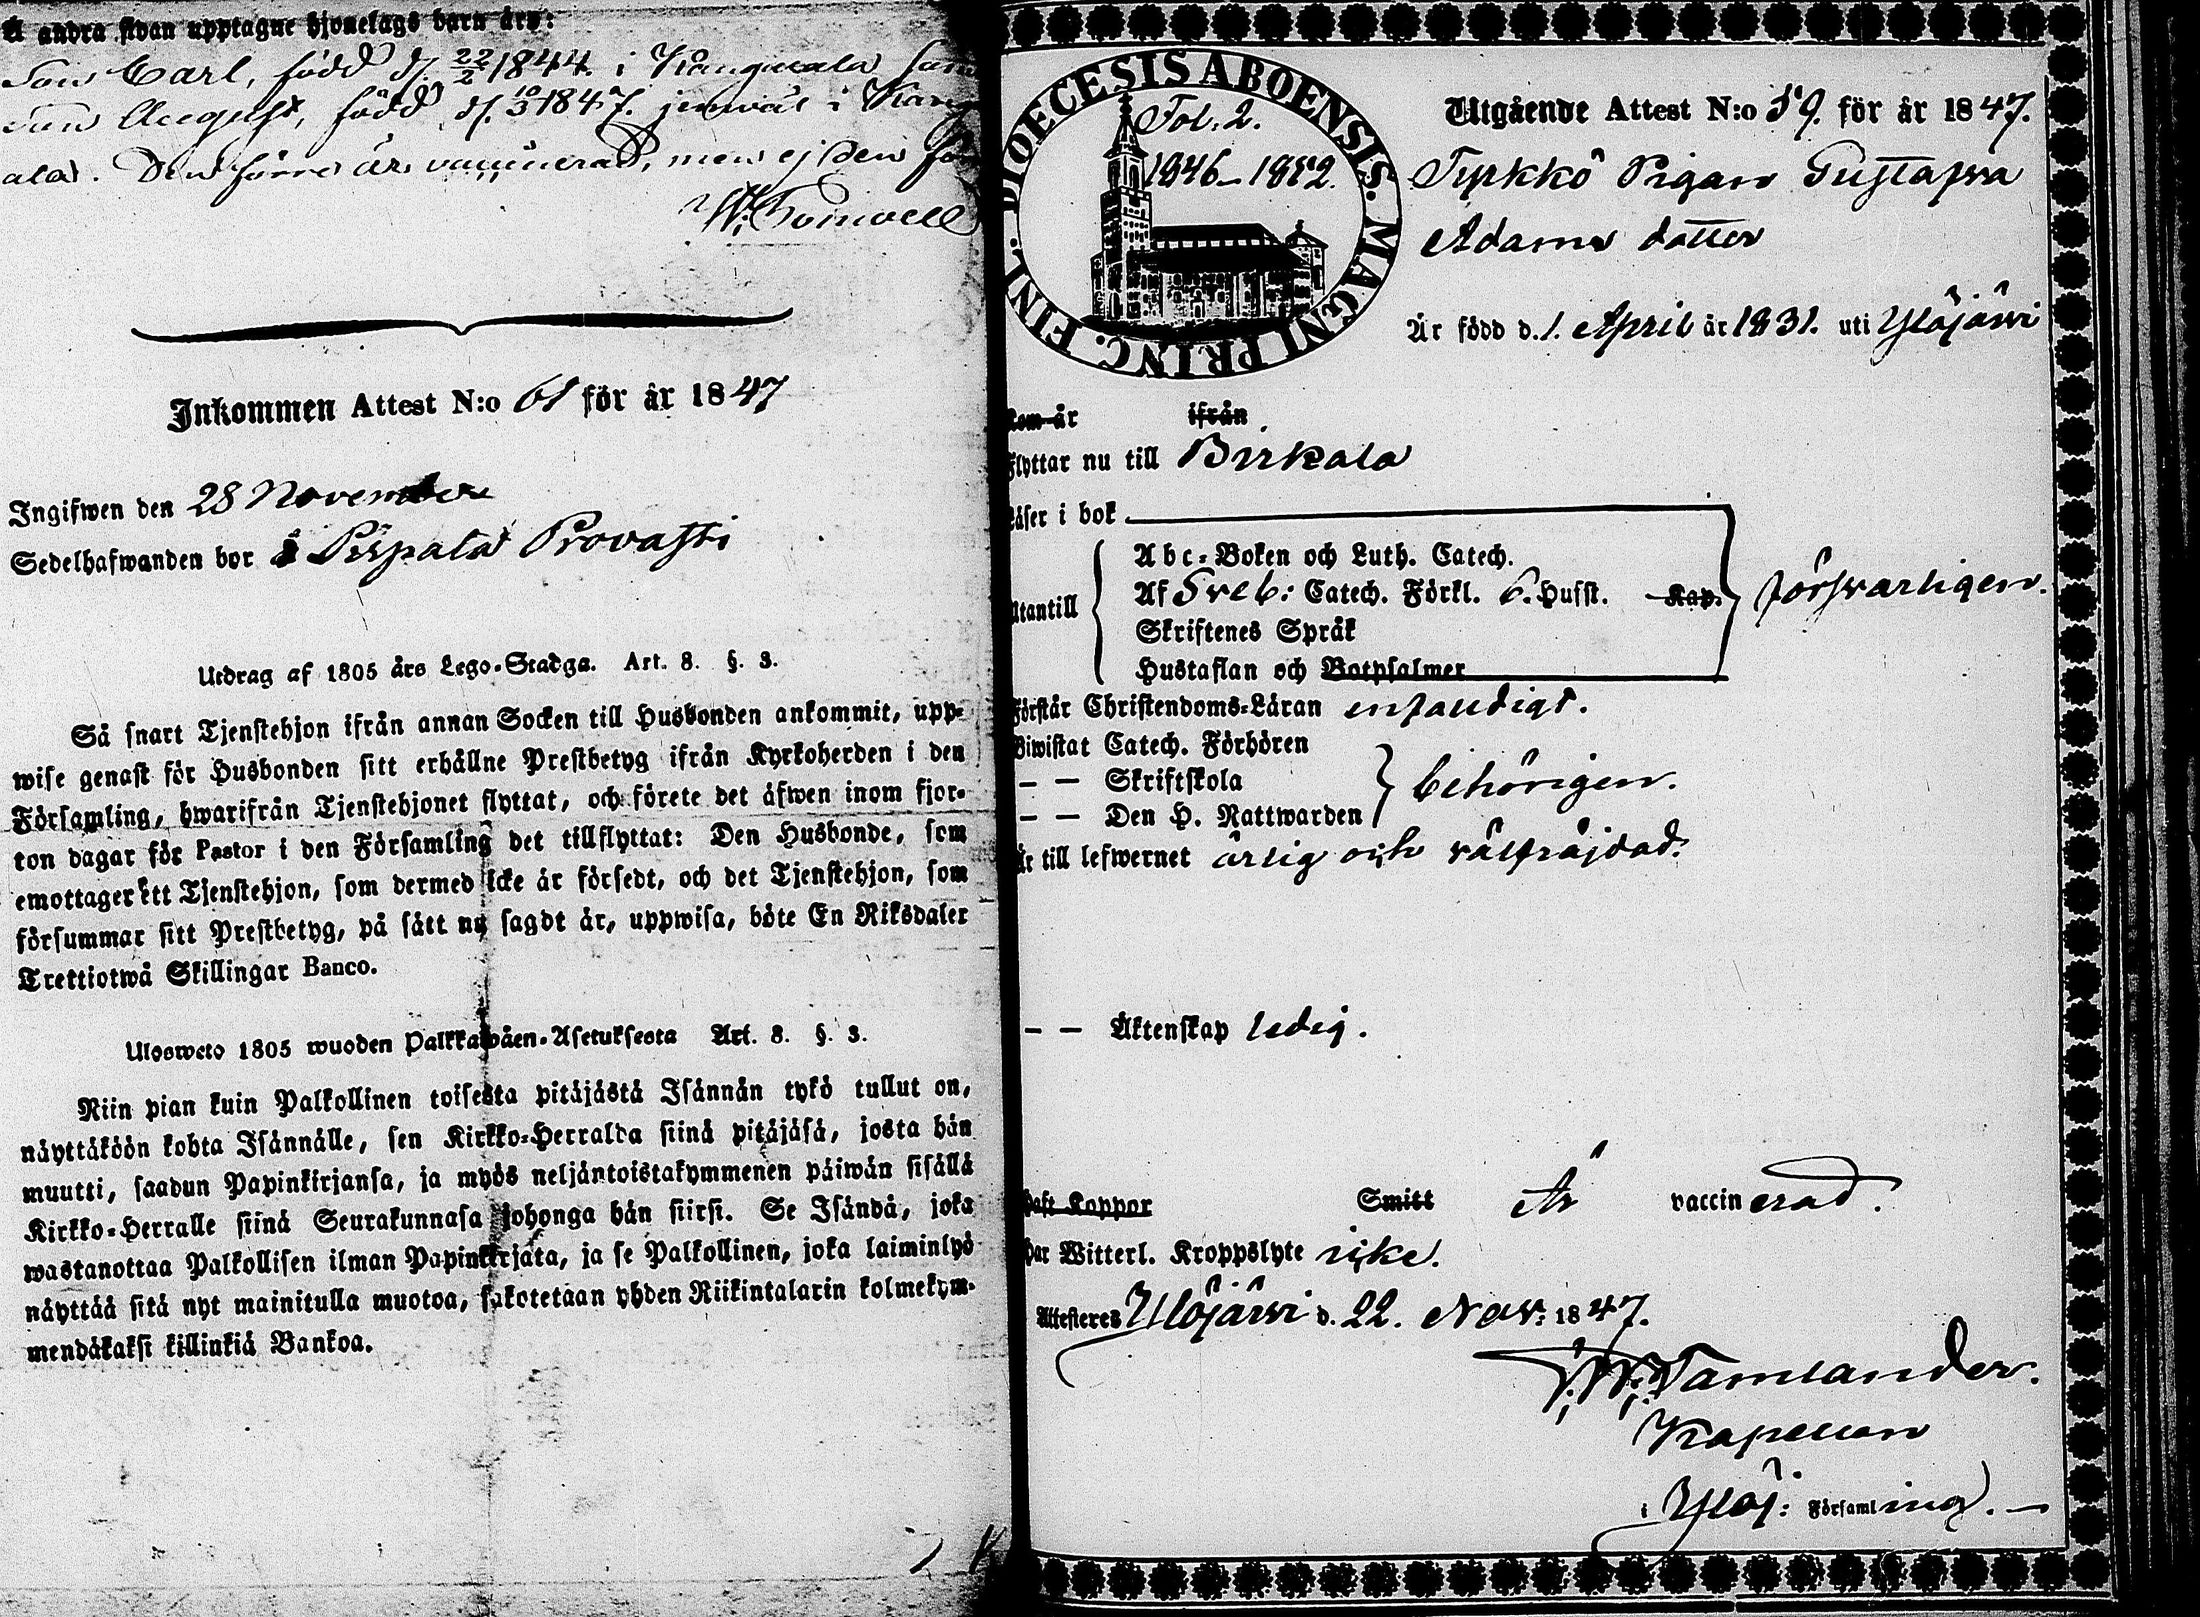 Å andra sidan upptagne hjonelags barn äro:
Son Carl, född d. 22/2 1844. i Kangasala samt
Son August, född d. 10/3 1847. jemväl i Kang
ala. Den förre är vaccinerad, men ej den
Inkommen Attest N:o 61 för år 1847
Ingifwen den 28 November
Sedelhafwanden bor å Pispala Provasti
Utdrag af 1805 års Lego-Stadga. Art. 8. §. 3.
Så snart Tjenstehjon ifrån annan Socken till Husbonden ankommit, upp-
wise genast för Husbonden sitt erhållne Prestbetyg ifrån Kyrkoherden i den
Församling, hwarifrån Tjenstehjonet flyttat, och förete det äfwen inom fjor-
ton dagar för Pastor i den Församling det tillflyttat: Den Husbonde, som
emottager ett Tjenstehjon, som dermed icke är försedt, och det Tjenstehjon, som
försummar sitt Prestbetyg, på sätt nu sagdt är, uppwisa, böte En Riksdaler
Trettiotwå Skillingar Banco.
Ulosweto 1805 wuoden Palkkawäen-Asetuksesta Art. 8. §. 3.
Niin pian kuin Palkollinen toisesta pitäjästä Isännän tykö tullut on,
näyttäköön kohta Isännälle, sen Kirkko-Herralda siinä pitäjäsä, josta hän
muutti, saadun Papinkirjansa, ja myös neljäntoistakymmenen päiwän sisällä
Kirkko-Herralle siinä Seurakunnasa johonga hän siirsi. Se Isändä, joka
wastanottaa Palkollisen ilman Papinkirjata, ja se Palkollinen, joka laiminlyö
näyttää sitä nyt mainitulla muotoa, sakotetaan yhden Riikintalarin kolmekym-
mendäkaksi killinkiä Bankoa.
DIOECESIS ABOENSIS. MAGNI PRINC. FINL.
Fol. 2.
1846-1852.
Utgående Attest N:o 59. för år 1847.
Tyrkkö Pigan Gustafva
Adams dotter
Är född d. 1. April år 1831. uti Ylöjärvi
Kom år ifrån
Flyttar nu till Birkala
Läser i bok
Utantill
Abc-Boken och Luth. Catech.
Af Sveb: Catech. Förkl. 6. Hufst. Kap.
Skriftenes Språk
Hustaflan och Botpsalmer
försvarligen.
Förstår Christendoms-Läran enfaldigt.
Biwistat Catech. Förhören
— — Skriftskola
— — Den H. Nattwarden
behörigen.
Är till lefwernet ärlig och välfräjdad.
— — Äktenskap ledig.
Haft Koppor Smitt Är vaccinerad.
Har Witterl. Kroppslyte icke.
Attesteres Ylöjärvi d. 22. Nov: 1847.
Tamlander.
Kapellan
i Ylöj: Församling.